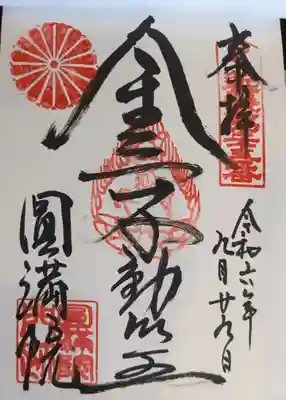 奉拝
令和六年
九月廿九日
金不動明王
圓満院